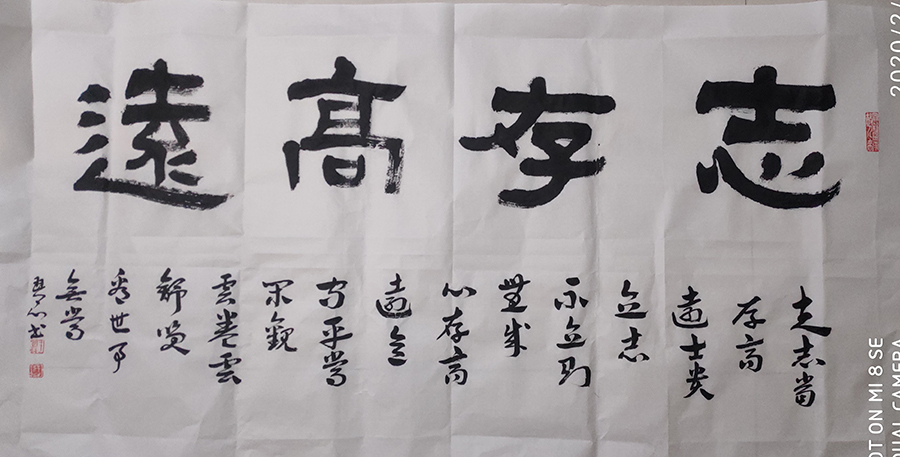 志存高遠
夫志當
存高
遠士貴
立志
不立則
無成
心存高
遠意
守平常
閑觀
雲卷雲
舒笑
看世事
無常
2020/2/
OT ON MI 8 SE
UAL CAMERA